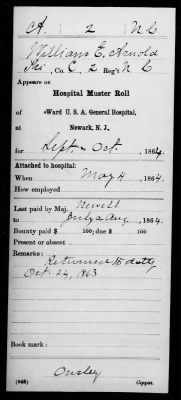 A. 2 N C
William E. Arnold
Pvt, Co. C, 2 Reg't N C
Appears on
Hospital Muster Roll
of Ward U. S. A. General Hospital,
at Newark, N. J.,
for Sept & Oct, 1864.
Attached to hospital:
When May 4, 1864.
How employed
Last paid by Maj. Newell
to July & Aug, 1864.
Bounty paid $ 100; due $ 100
Present or absent
Remarks: Returned to duty
Oct. 24, 1863
Book mark:
Ousley
(343) Copyist.